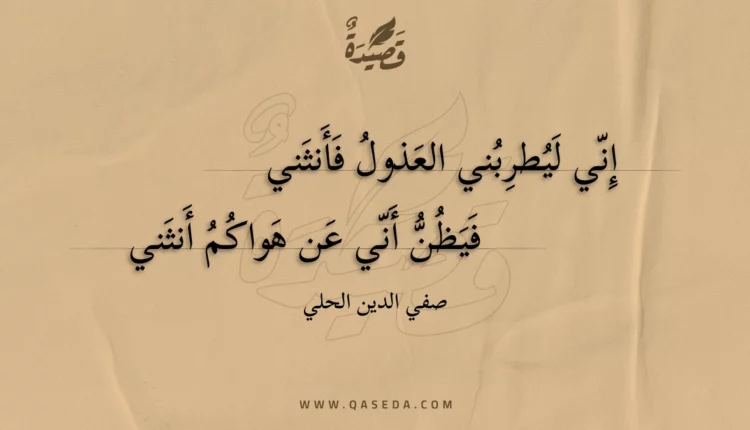 قَصِيدَةٌ
إِنّي لَيُطرِبُني العَذولُ فَأَنثَني
فَيَظُنُّ أَنّي عَن هَواكُمُ أَنثَني
صفي الدين الحلي
WWW.QASEDA.COM